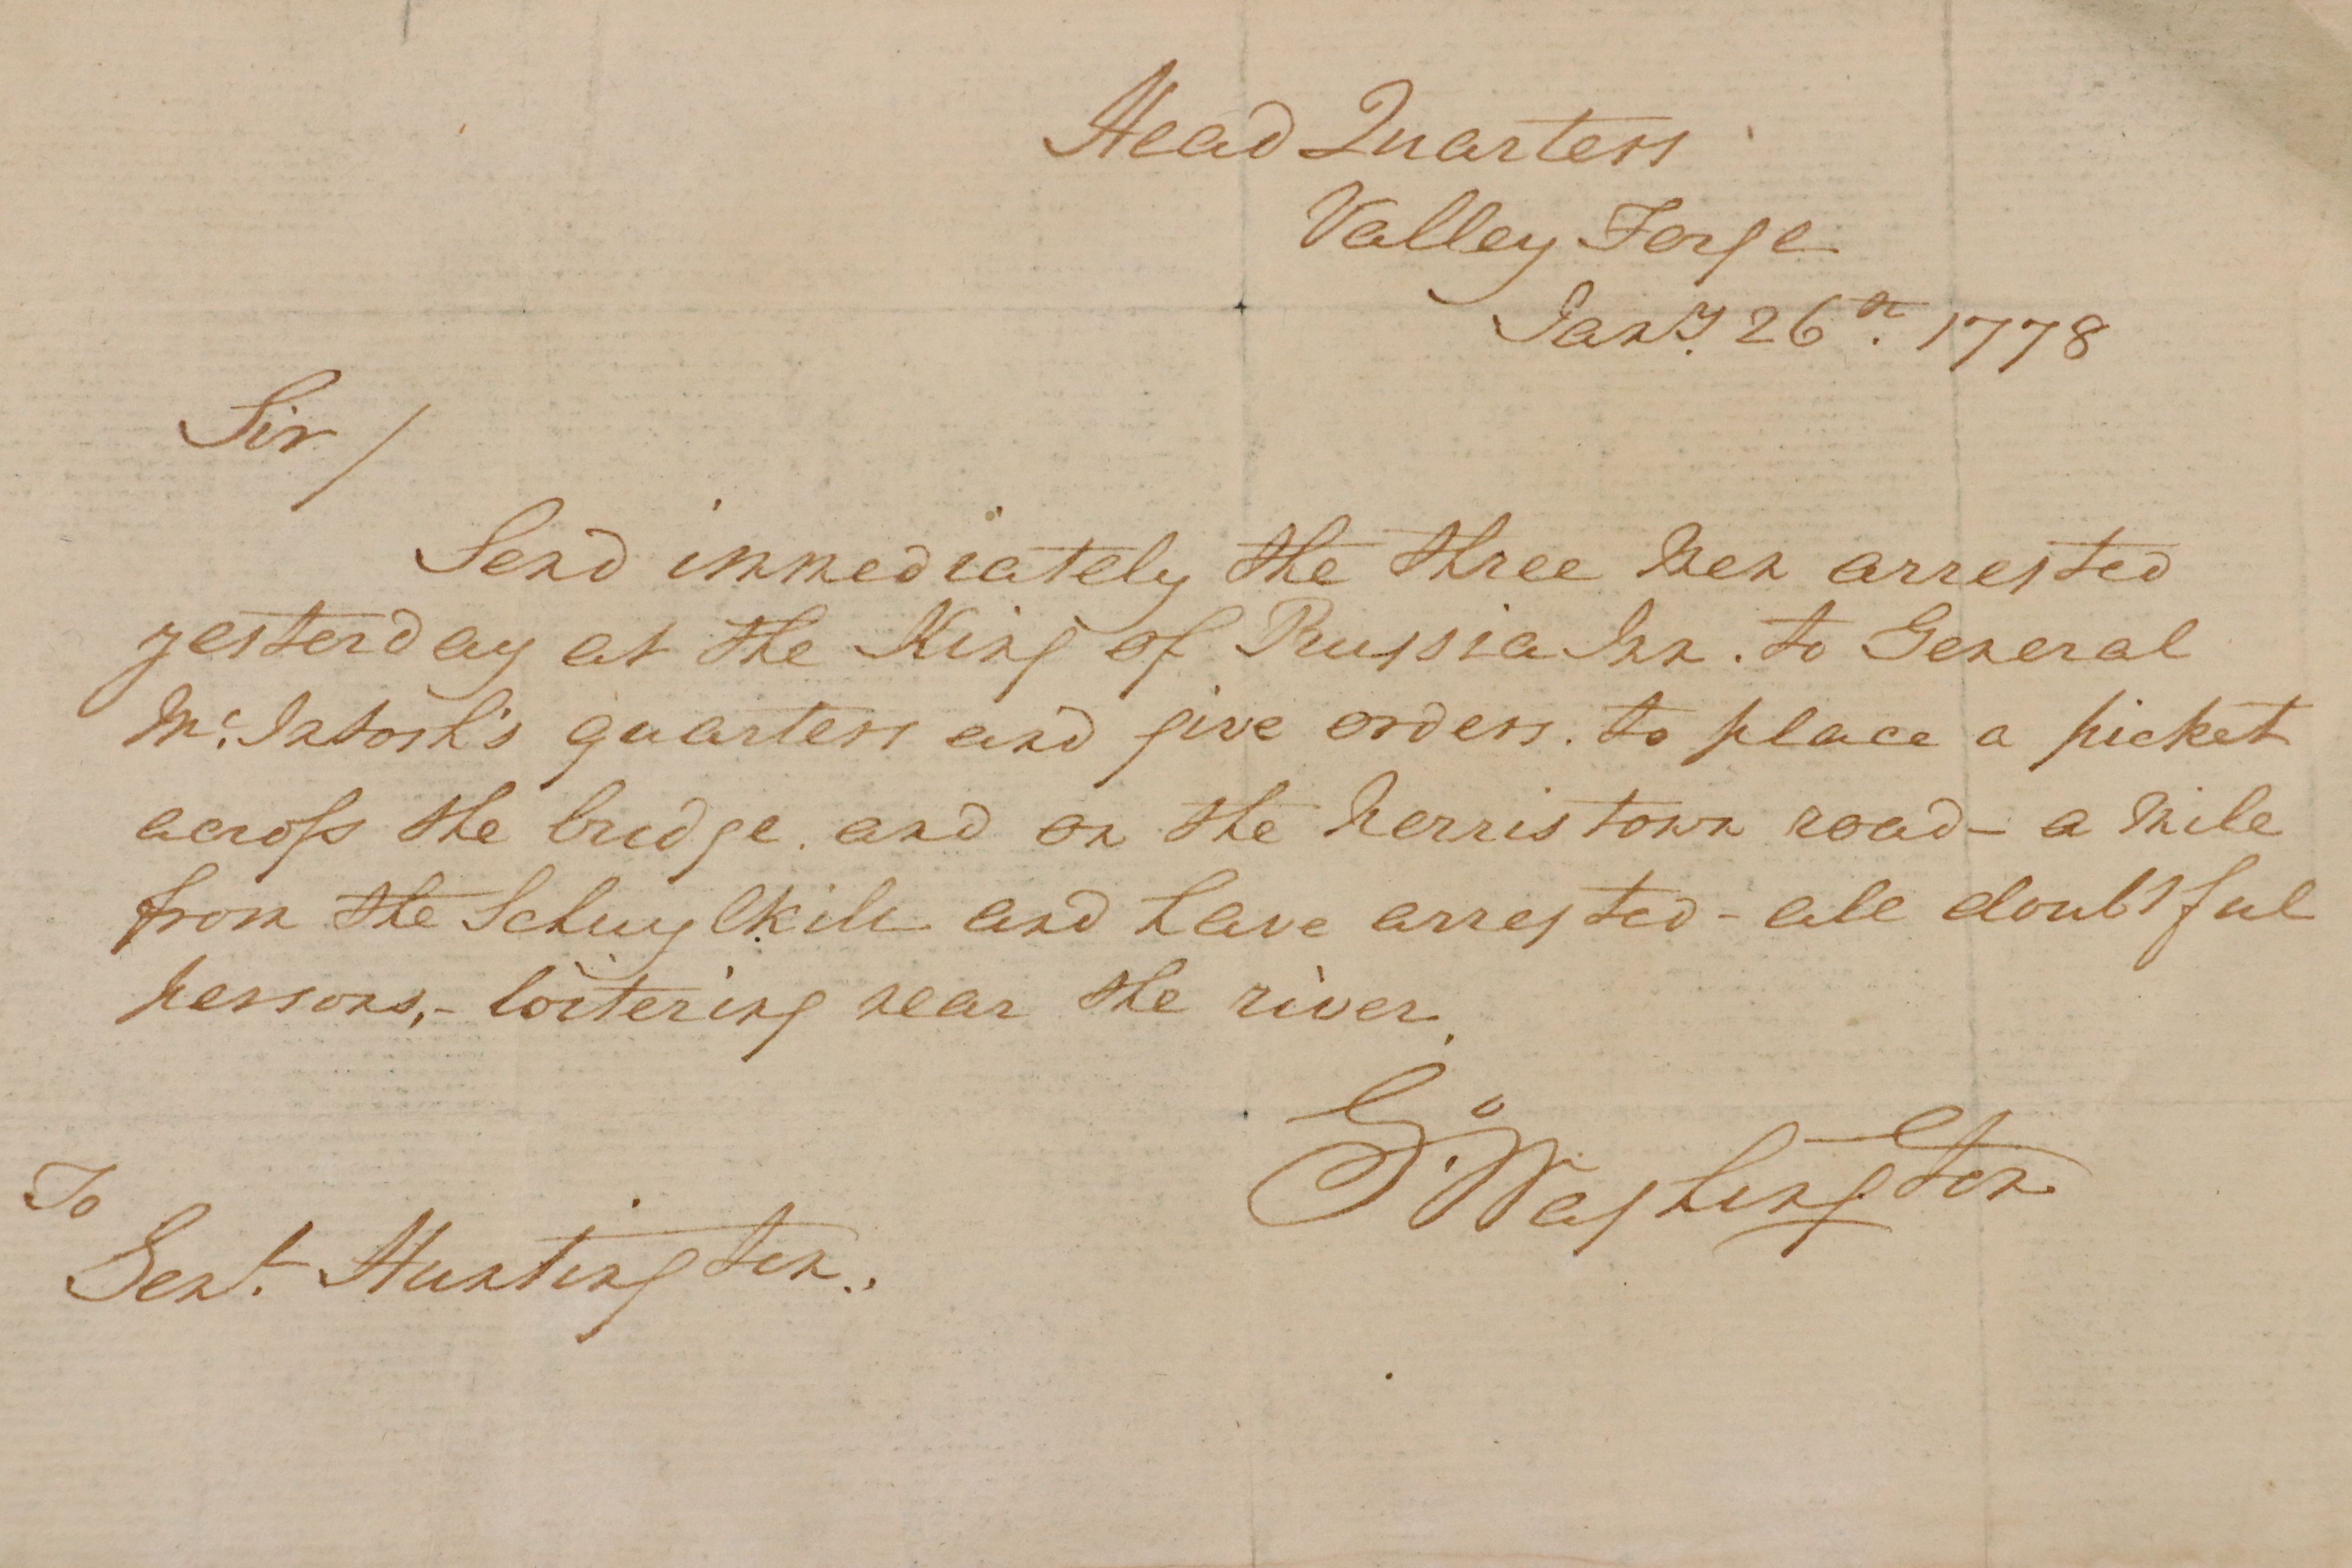 Head Quarters
Valley Forge
Jany. 26th. 1778
Sir /
Send immediately the three Men arrested
yesterday at the King of Prussia Inn. to General
Mc. Intosh's quarters and give orders. to place a picket
across the bridge. and on the Norristown road – a Mile
from the Schuylkill and have arrested – all doubtful
persons, – loitering near the river.
Go. Washington
To
Genl. Huntington.